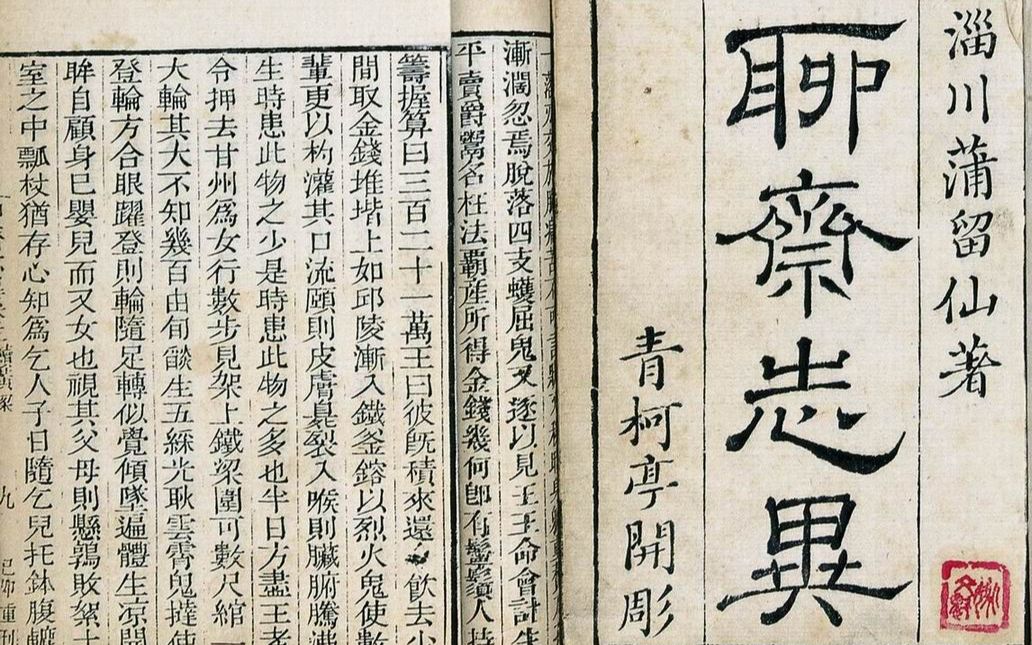 淄川蒲留仙著
聊齋志異
青柯亭開彫
漸濶忽焉脫落四支蠖屈鬼又逐以見王王命會計生
平賣爵鬻名枉法霸産所得金錢幾何即有鬡鬚人持
籌握算曰三百二十一萬王曰彼旣積來還令飲去少
間取金錢堆堦上如邱陵漸入鐵釜鎔以烈火鬼使數
輩更以杓灌其口流頤則皮膚臭裂入喉則臟腑騰沸
生時患此物之少是時患此物之多也半日方盡王者
令押去甘州爲女行數步見架上鐵梁圍可數尺綰一
大輪其大不知幾百由旬燄生五綵光耿雲霄鬼撻使
登輪方合眼躍登則輪隨足轉似覺傾墜遍體生凉開
眸自顧身已嬰兒而又女也視其父母則懸鶉敗絮土
室之中瓢杖猶存心知爲乞人子日隨乞兒托鉢腹轆
九
己卯重刊